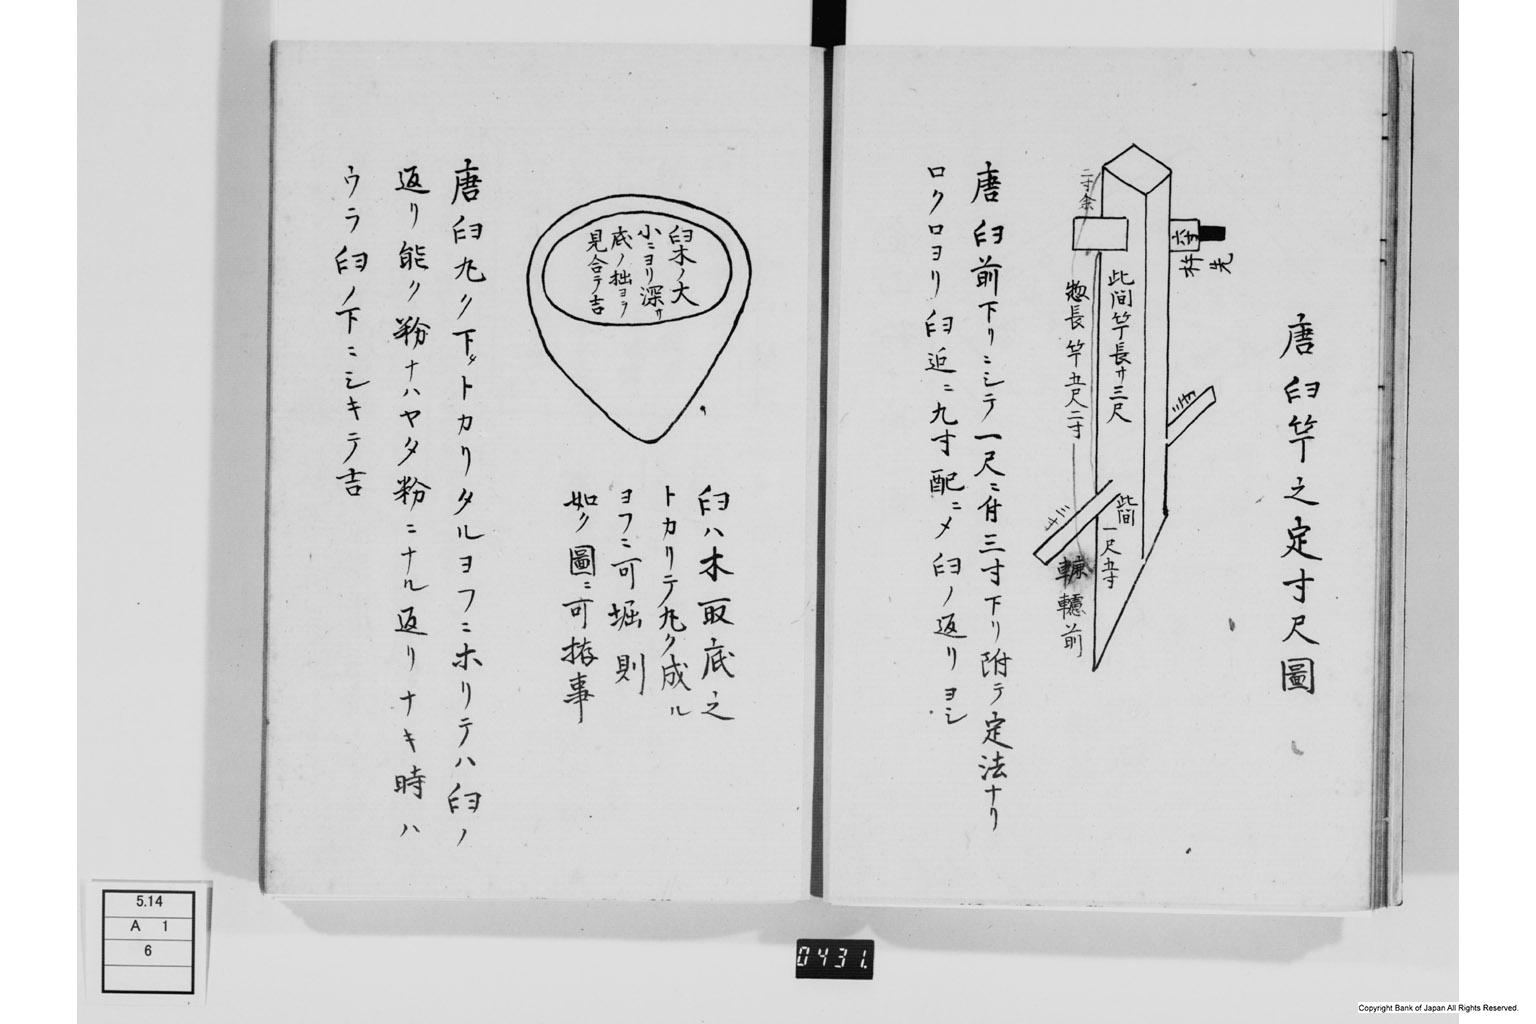 唐臼竿之定寸尺圖
二寸余
六寸
杵先
此間竿長サ三尺
惣長竿五尺二寸
三寸
三寸
此間一尺五寸
轆轤前
唐臼前下リニシテ一尺ニ付三寸下リ附テ定法ナリ
ロクロヨリ臼近ニ九寸配ニメ臼ノ返リヨシ
臼木ノ大
小ニヨリ深サ
底ノ拙ヨラ
見合テ吉
臼ハ木取底之
トカリテ丸ク成ル
ヨフニ可堀則
如ク圖ニ可拵事
唐臼丸ク下タトカリタルヨフニホリテハ臼ノ
返リ能ク粉ナハヤタ粉ニナル返リナキ時ハ
ウラ臼ノ下ニシキテ吉
5.14
A 1
6
0431.
Copyright Bank of Japan All Rights Reserved.